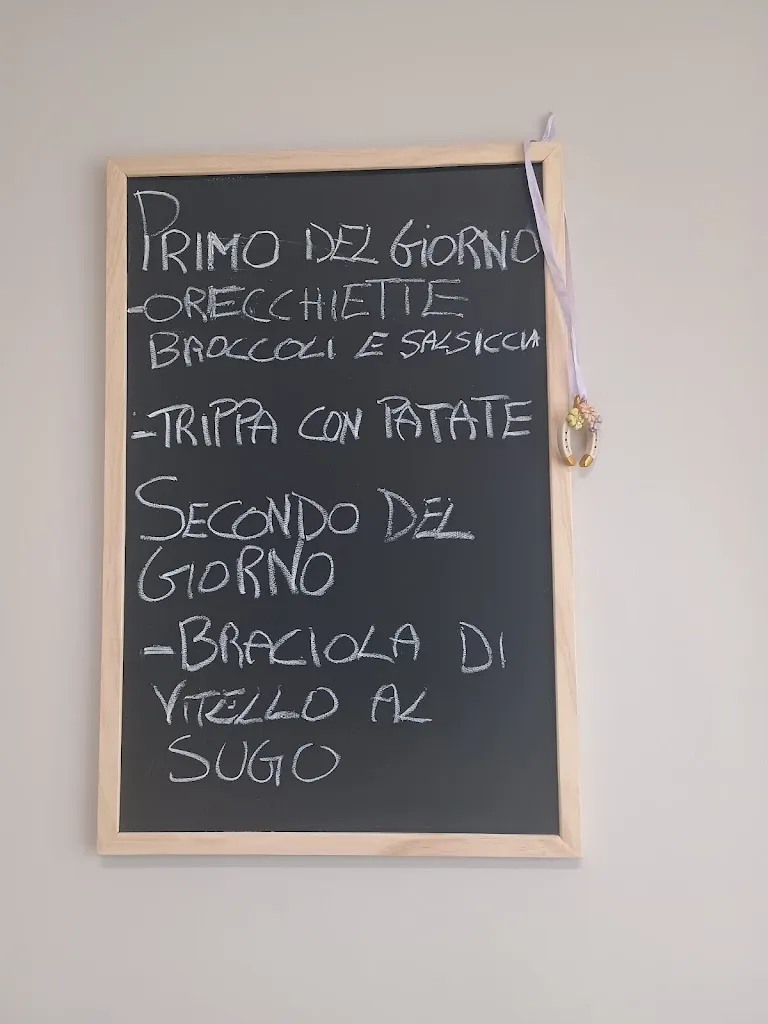 PRIMO DEL GIORNO
-ORECCHIETTE
BROCCOLI E SALSICCIA
-TRIPPA CON PATATE
SECONDO DEL
GIORNO
-BRACIOLA DI
VITELLO AL
SUGO